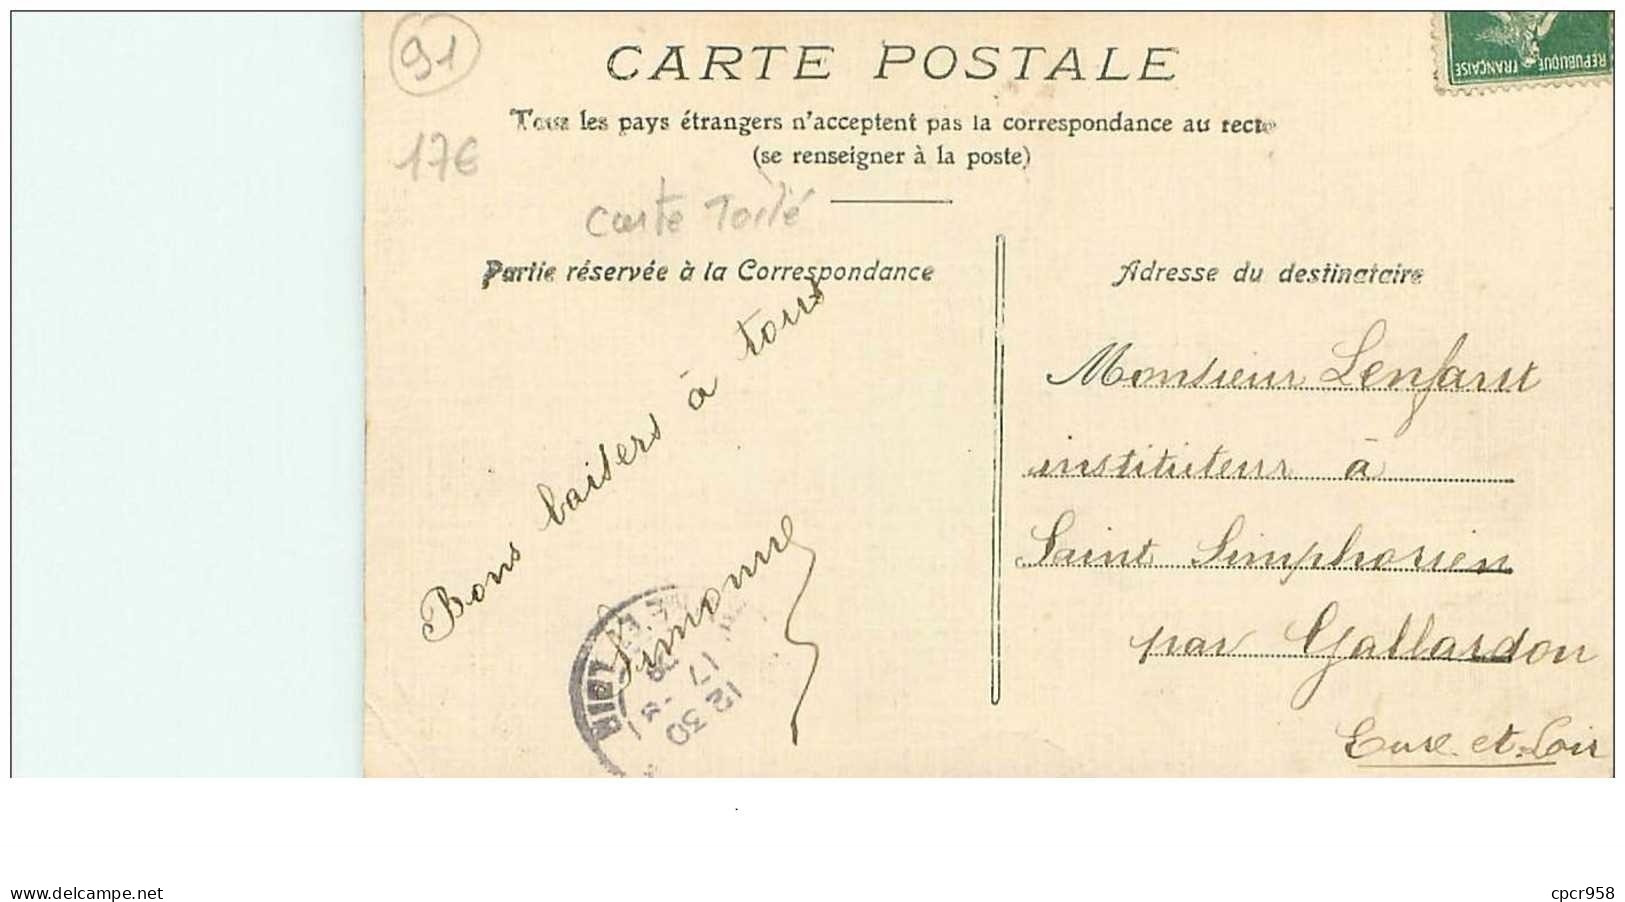 91
CARTE POSTALE
Tous les pays étrangers n'acceptent pas la correspondance au recto
(se renseigner à la poste)
17€
Carte Toilé
Partie réservée à la Correspondance
Bons baisers à tous
Simonne
Adresse du destinataire
Monsieur Lenfant
instituteur à
Saint Simphorien
par Gallardon
Eure-et-Loir
REPUBLIQUE FRANÇAISE
12 30
17
LOIR
www.delcampe.net
cpcr958